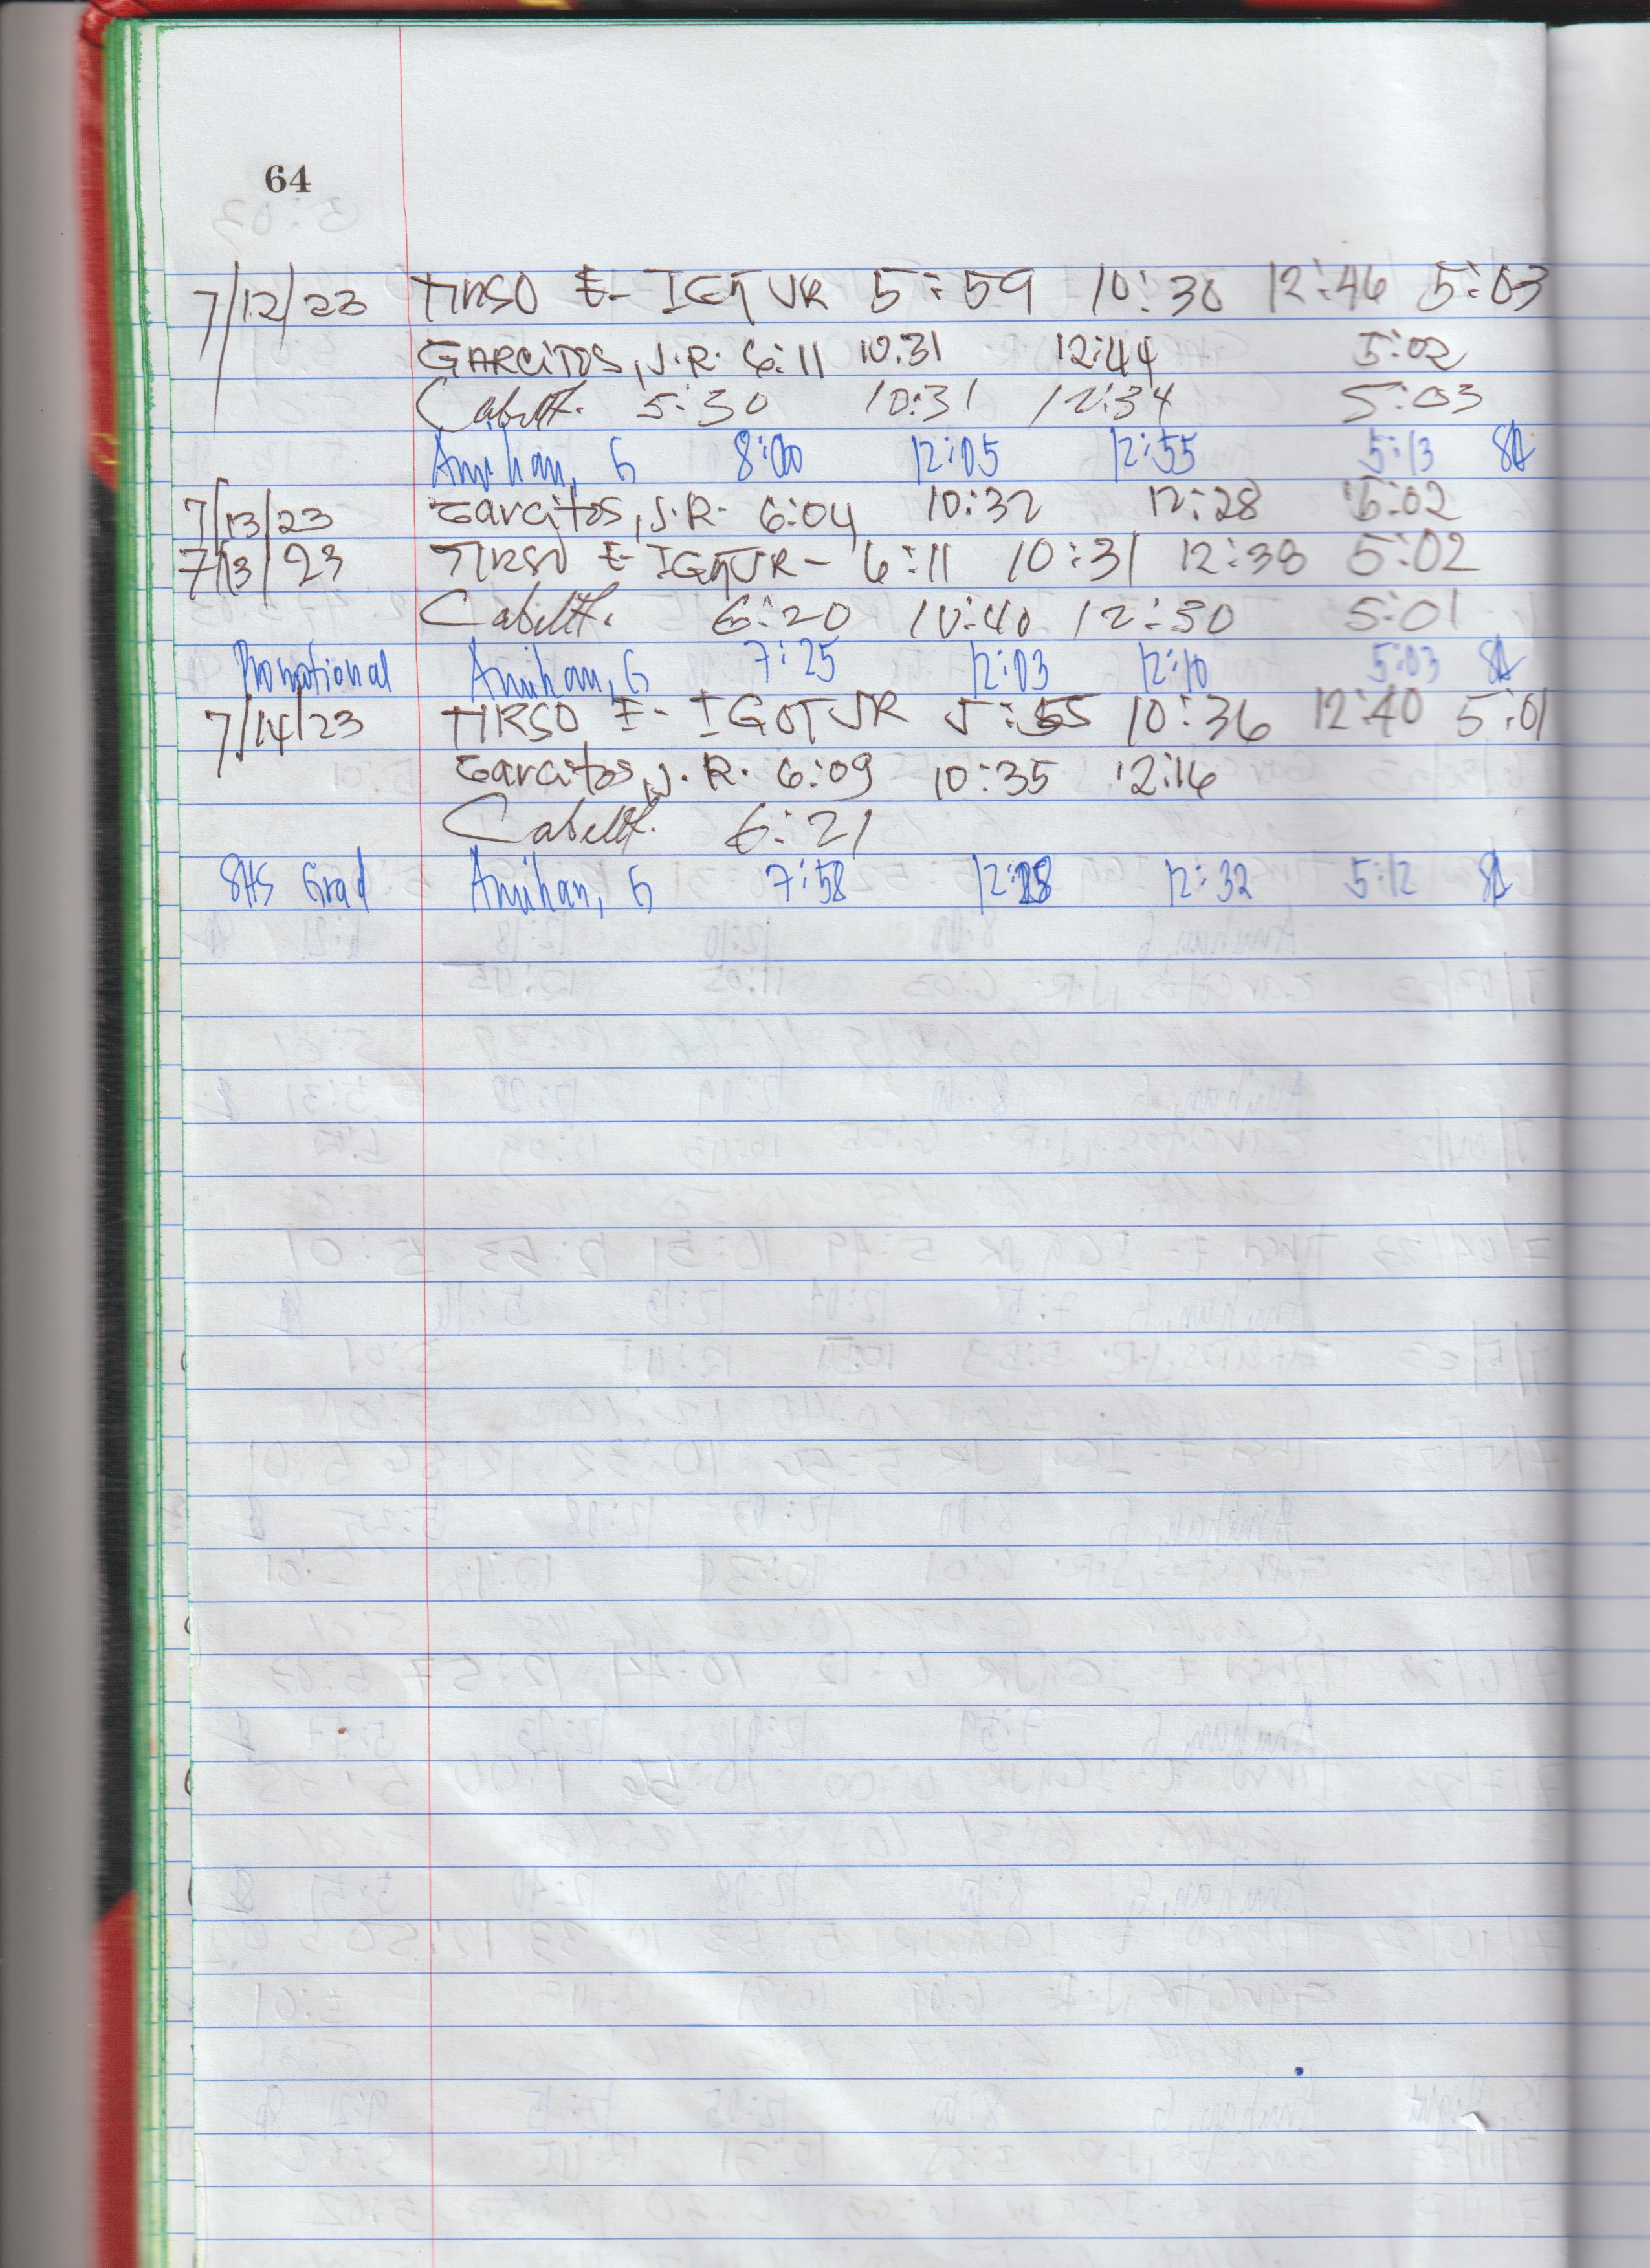 64
7/12/23 TIRSO E- IGOT JR 5:59 10:30 12:46 5:03
GARCITOS, J.R. 6:11 10:31 12:44 5:02
5:30 10:31 12:34 5:03
Amihan, G 8:00 12:05 12:55 5:13
7/13/23 Garcitos, J.R. 6:04 10:32 12:28 5:02
7/13/23 TIRSO E- IGOT JR - 6:11 10:31 12:38 5:02
6:20 10:40 12:30 5:01
Promotional Amihan, G 7:25 12:03 12:10 5:03
7/14/23 TIRSO E- IGOT JR 5:55 10:36 12:40 5:01
Garcitos, J.R. 6:09 10:35 12:16
6:21
SHS Grad Amihan, G 7:58 12:32 5:12